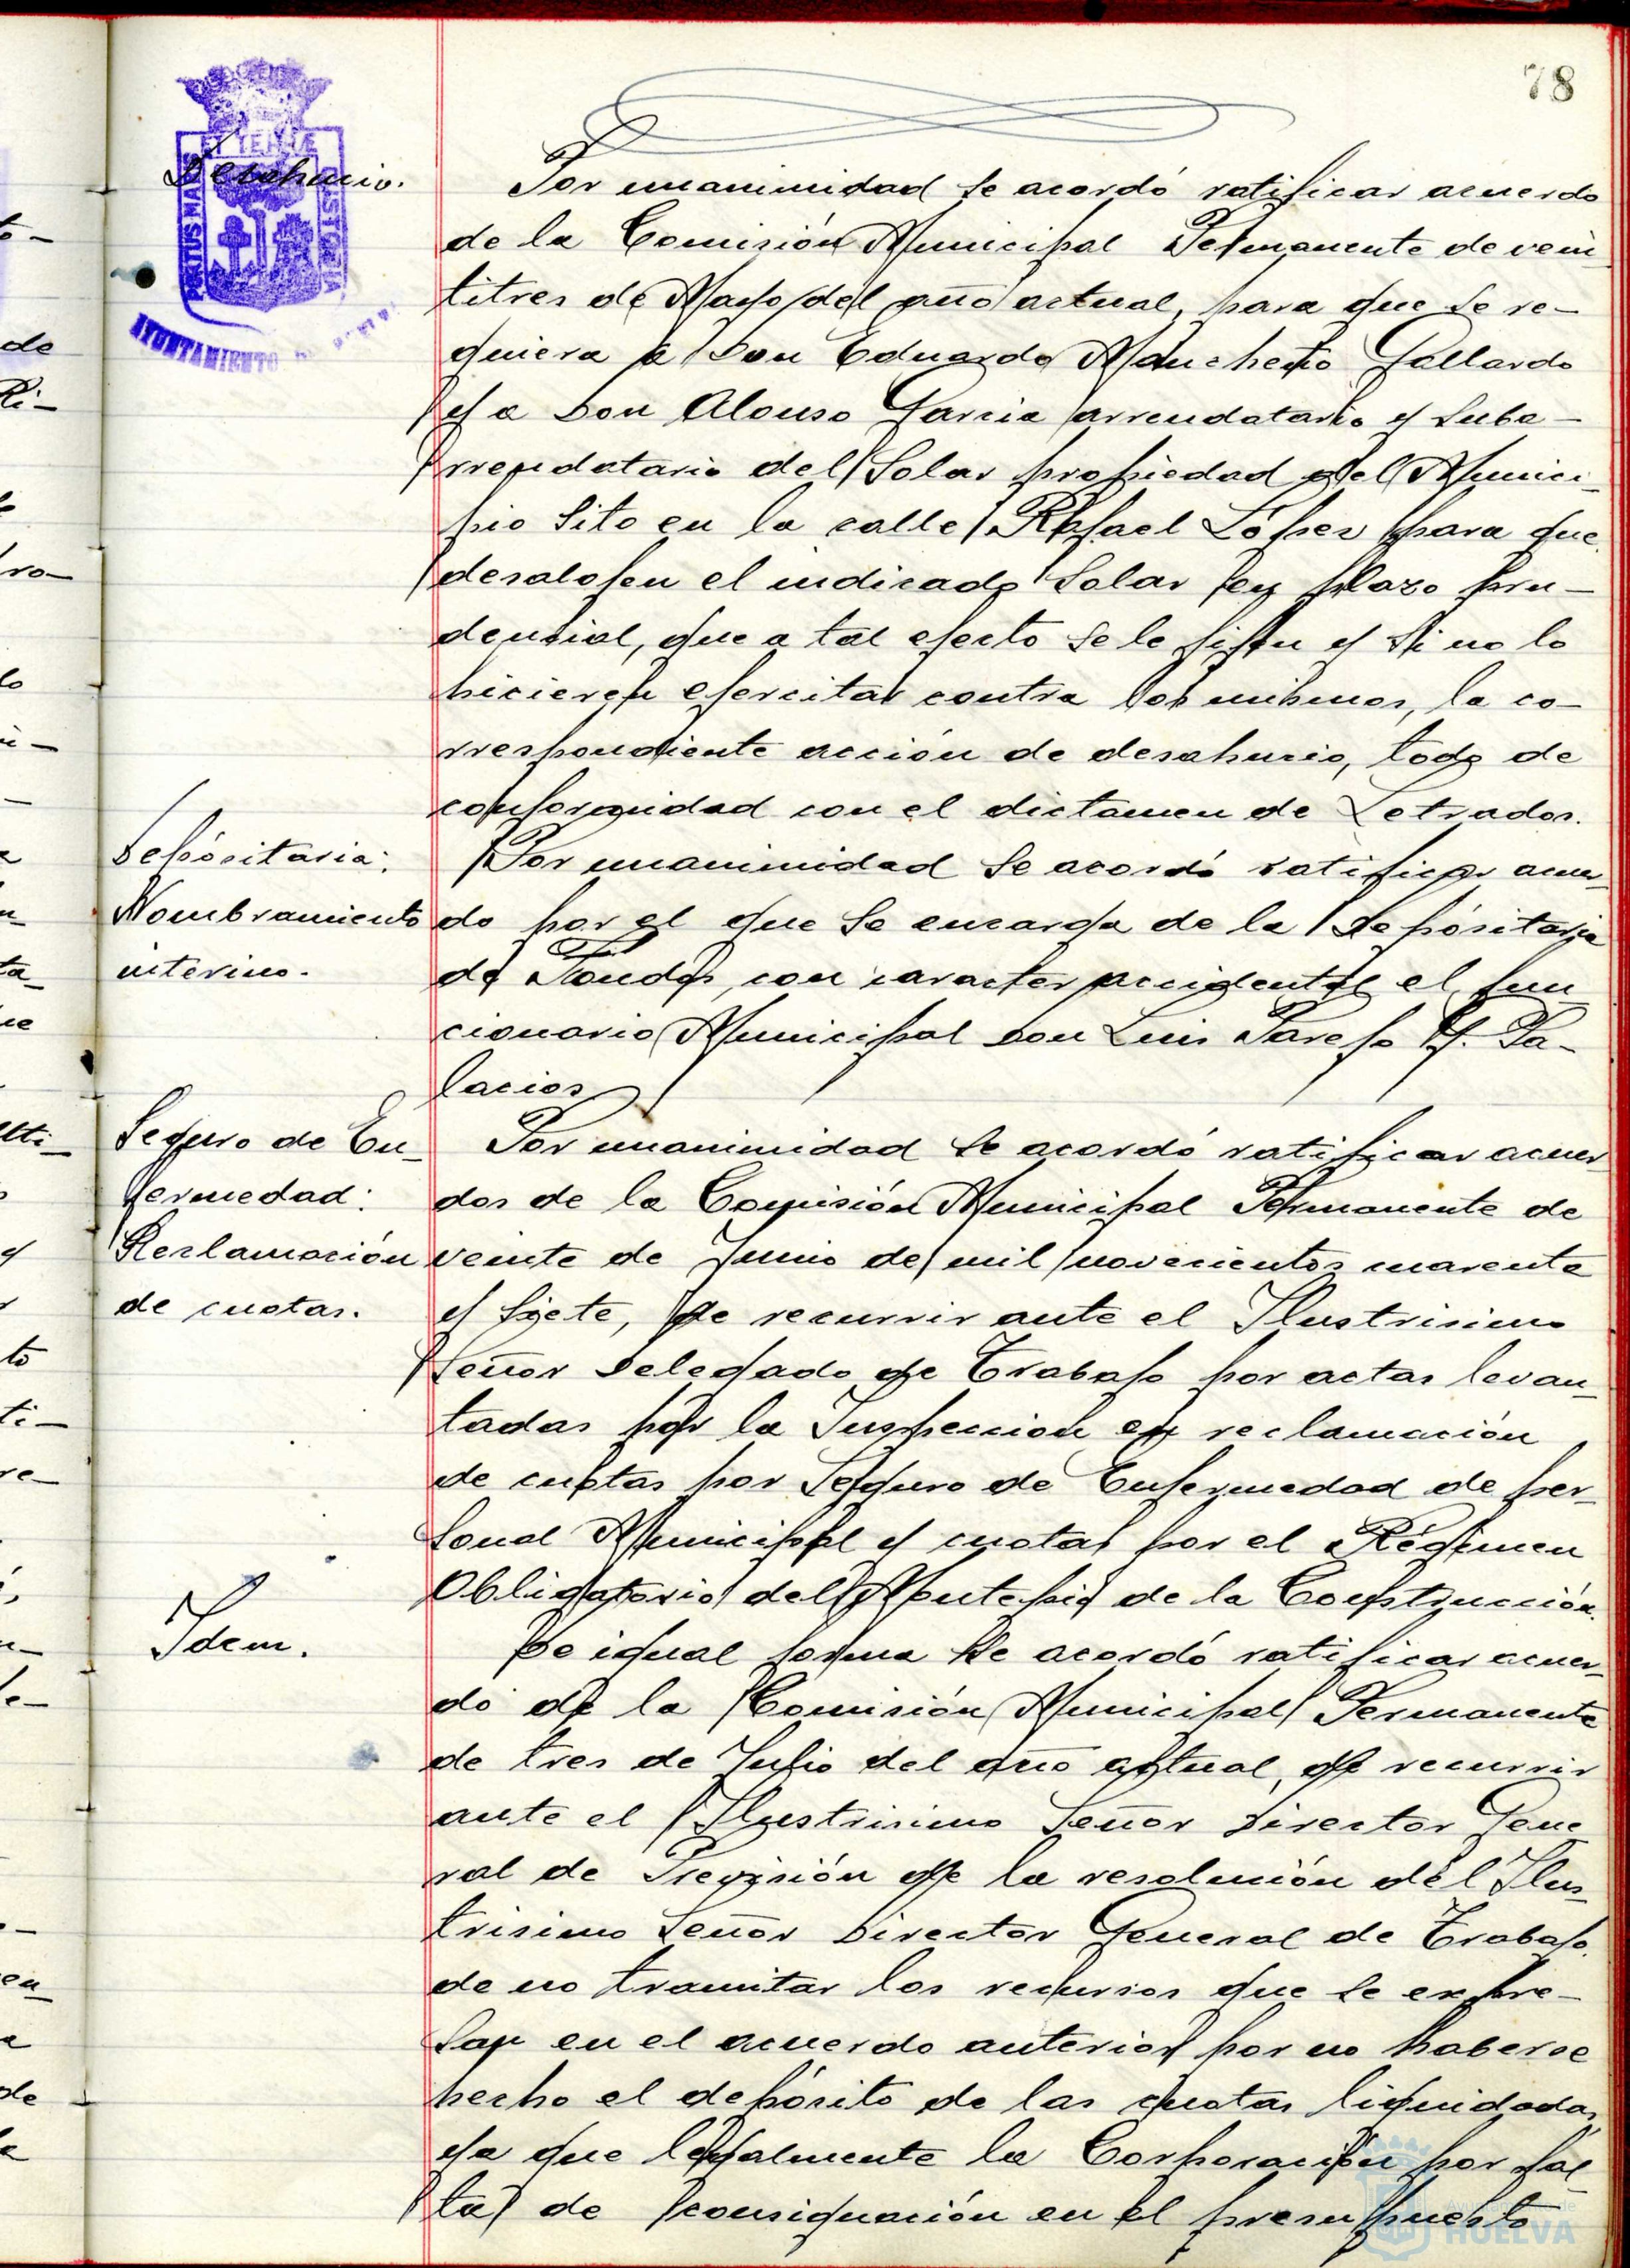 78
Desahucio.
Por unanimidad se acordó ratificar acuerdo
de la Comisión Municipal Permanente de vein
titres de Mayo del año actual, para que se re-
quiera a Don Eduardo Mancheño Gallardo
y a Don Alonso Garcia arrendatario y suba-
rrendatario del Solar propiedad del Munici-
pio sito en la calle Rafael López para que
desalojen el indicado Solar en plazo pru-
dencial, que a tal efecto se le fijen y si no lo
hicieren ejercitar contra los mismos, la co-
rrespondiente acción de desahucio, todo de
conformidad con el dictamen de Letrados.
Depósitaria:
Nombramiento
interino.
Por unanimidad se acordó ratificar acuer-
do por el que se encarga de la Depósitaria
de Fondos, con caracter accidental el fun
cionario Municipal Don Luis Parejo G. Pa-
lacios
Seguro de En-
fermedad:
Reclamación
de cuotas.
Por unanimidad se acordó ratificar acuer
dos de la Comisión Municipal Permanente de
veinte de Junio de mil novecientos cuarenta
y siete, de recurrir ante el Ilustrisimo
Señor Delegado de Trabajo por actas levan-
tadas por la Inspección en reclamación
de cuotas por Seguro de Enfermedad de per-
sonal Municipal y cuotas por el Régimen
Obligatorio del Montepio de la Construcción.
Idem.
De igual forma se acordó ratificar acuer-
do de la Comisión Municipal Permanente
de tres de Julio del año actual, de recurrir
ante el Ilustrisimo Señor Director Gene
ral de Previsión de la resolución del Ilus-
trisimo Señor Director General de Trabajo
de no tramitar los recursos que se expre-
san en el acuerdo anterior por no haberse
hecho el depósito de las cuotas liquidadas
ya que legalmente la Corporación por fal
ta de consignación en el presupuesto
PORTUS MARIS
ET TERRAE
CUSTODIA
AYUNTAMIENTO
Ayuntamiento de
HUELVA